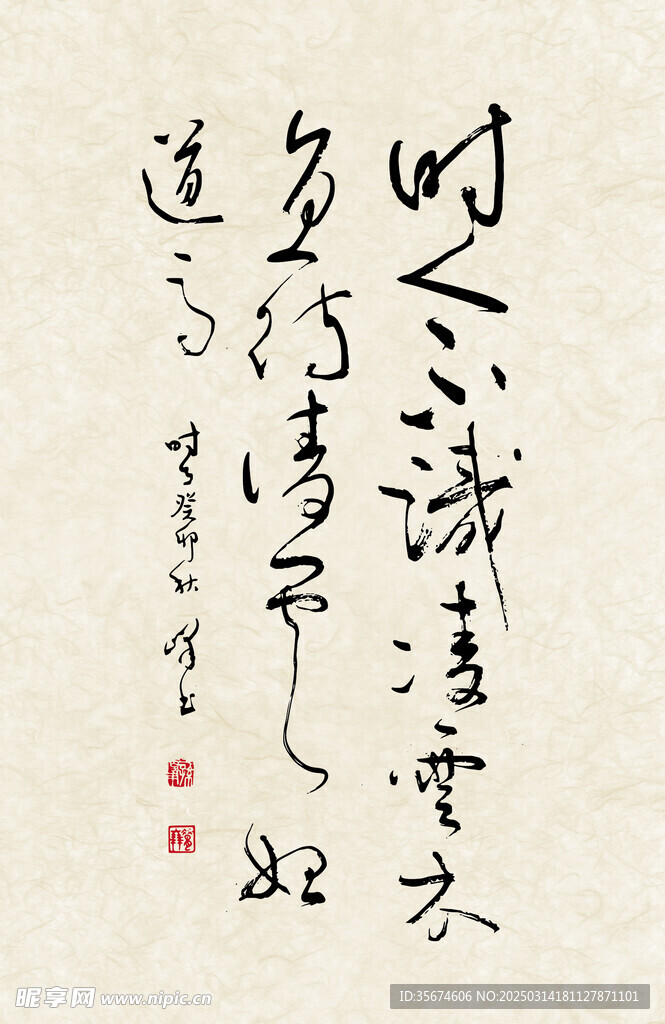 时人不识凌雲木
直待凌云始
道高
时癸卯秋 峰书
昵享网 www.nipic.cn
ID:35674606 NO:20250314181127871101